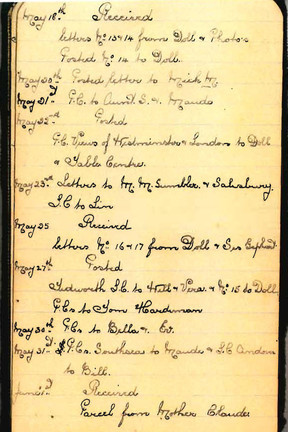 May 18th Received
letters No 13 & 14 from Doll & Photos
Posted No 14 to Doll.
May 20th Posted letters to Mick M
May 21st P.C. to Aunt S. & Maude
May 22nd Posted
P.C. Views of Westminster London to Doll
& Table Centre.
May 23rd Letters to M. M. & Salisbury.
P.C to Lin
May 25 Received
letters No 16 & 17 from Doll &
May 27th Posted
Tidworth P.C. to & Vera. & No 15 to Doll
P.Cs to Tom Hardman
May 30th P.Cs to Bella & Ev.
May 31st P.Cs. to Maude & P.C
to Bill.
June Received
Parcel from Mother Claude